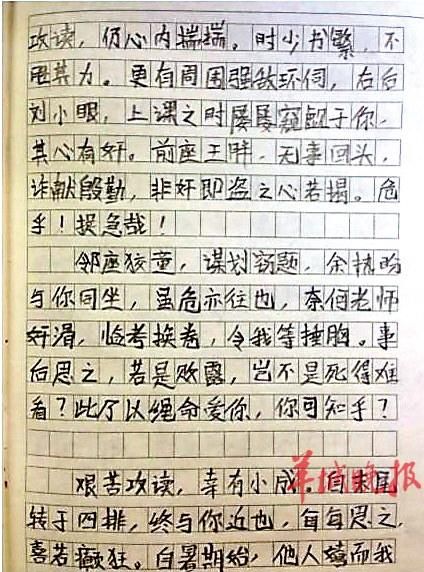 攻读，仍心内揣揣。时少书繁，不
其力。更有周围强敌环伺，右后
刘小眼，上课之时屡屡窥觎于你，
其心有奸。前座王胖，无事回头，
诈献殷勤，非奸即盗之心若揭。危
乎！捉急哉！
邻座狡童，谋划窃题，余
与你同坐，虽危亦往也，奈何老师
奸滑，临考换卷，令我等捶胸。事
后思之，若是败露，岂不是死得难
看？此乃以绳命爱你，你可知乎？
羊城晚报
艰苦攻读，幸有小成。自末尾
转于四排，终与你近也，每每思之，
喜若癫狂。自暑期始，他人嬉而我